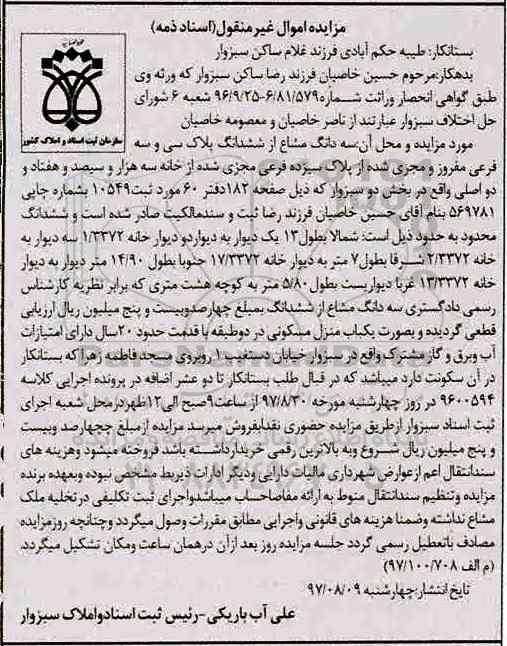 مزایده اموال غیر منقول(اسناد ذمه)
بستانکار: طیبه حکم آبادی فرزند غلام ساکن سبزوار
بدهکار:مرحوم حسین خاصیان فرزند رضا ساکن سبزوار که ورثه وی
طبق گواهی انحصار وراثت شماره ۶/۸۱/۵۷۹-۹۶/۹/۲۵ شعبه ۶ شورای
حل اختلاف سبزوار عبارتند از ناصر خاصیان و معصومه خاصیان
سازمان ثبت اسناد و املاک کشور
مورد مزایده و محل آن:سه دانگ مشاع از ششدانگ پلاک سی و سه
فرعی مفروز و مجزی شده از پلاک سیزده فرعی مجزی شده از خانه سه هزار و سیصد و هفتاد و
دو اصلی واقع در بخش دو سبزوار که ذیل صفحه ۱۸۲ دفتر ۶۰ مورد ثبت ۱۰۵۴۹ بشماره چاپی
۵۶۹۷۸۱ بنام آقای حسین خاصیان فرزند رضا ثبت و سندمالکیت صادر شده است و ششدانگ
محدود به حدود ذیل است: شمالا بطول ۱۳ یک دیوار به دیواردو دیوار خانه ۱/۳۳۷۲ سه دیوار به
خانه ۲/۳۳۷۲ شرقا بطول ۷ متر به دیوار خانه ۱۷/۳۳۷۲ جنوبا بطول ۱۴/۹۰ متر دیوار به دیوار
خانه ۱۳/۳۳۷۲ غربا دیواریست بطول ۵/۸۰ متر به کوچه هشت متری که برابر نظریه کارشناس
رسمی دادگستری سه دانگ مشاع از ششدانگ بمبلغ چهارصدوبیست و پنج میلیون ریال ارزیابی
قطعی گردیده و بصورت یکباب منزل مسکونی در دوطبقه با قدمت حدود ۲۰سال دارای امتیازات
آب وبرق و گاز مشترک واقع در سبزوار خیابان دستغیب ۱ روبروی مسجد فاطمه زهرا که بستانکار
در آن سکونت دارد میباشد که در قبال طلب بستانکار تا دو عشر اضافه در پرونده اجرایی کلاسه
۹۶۰۰۵۹۴ در روز چهارشنبه مورخه ۹۷/۸/۳۰ از ساعت ۹صبح الی۱۲ظهردرمحل شعبه اجرای
ثبت اسناد سبزوار ازطریق مزایده حضوری نقدابفروش میرسد مزایده از مبلغ چچهارصد وبیست
و پنج میلیون ریال شروع وبه بالاترین رقمی خریدارداشته باشد فروخته میشود وهزینه های
سندانتقال اعم ازعوارض شهرداری مالیات دارایی ودیگر ادارات ذیربط مشخص نبوده وبعهده برنده
مزایده وتنظیم سندانتقال منوط به ارائه مفاصاحساب میباشدواجرای ثبت تکلیفی درتخلیه ملک
مشاع نداشته وضمنا هزینه های قانونی واجرایی مطابق مقررات وصول میگردد وچنانچه روزمزایده
مصادف باتعطیل رسمی گردد جلسه مزایده روز بعد ازآن درهمان ساعت ومکان تشکیل میگردد.
(م الف ۹۷/۱۰۰/۷۰۸)
تایخ انتشار:چهارشنبه ۹۷/۰۸/۰۹
علی آب باریکی-رئیس ثبت اسنادواملاک سبزوار